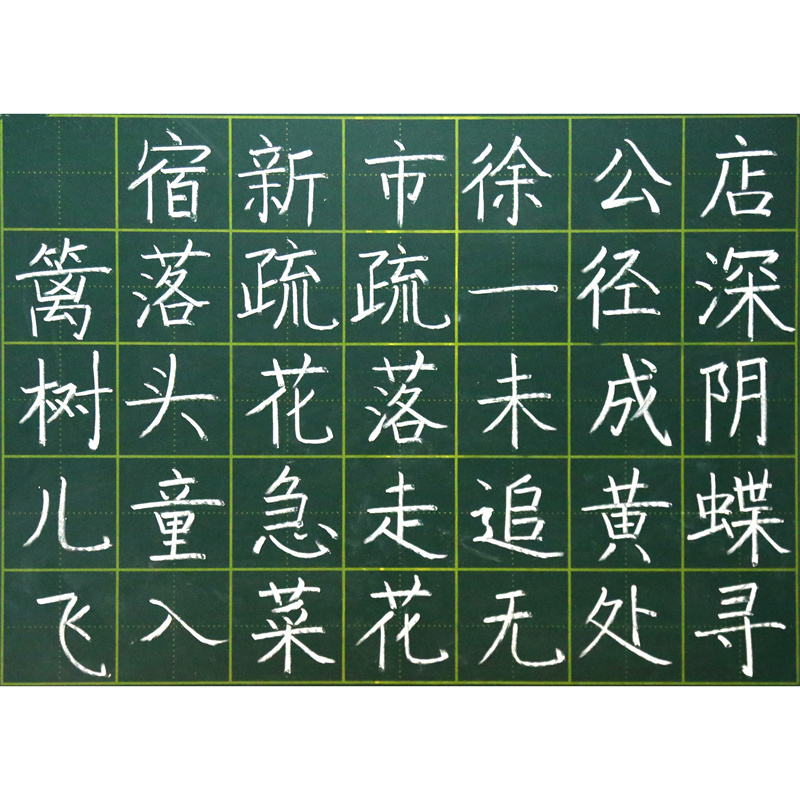 宿新市徐公店
篱落疏疏一径深
树头花落未成阴
儿童急走追黄蝶
飞入菜花无处寻